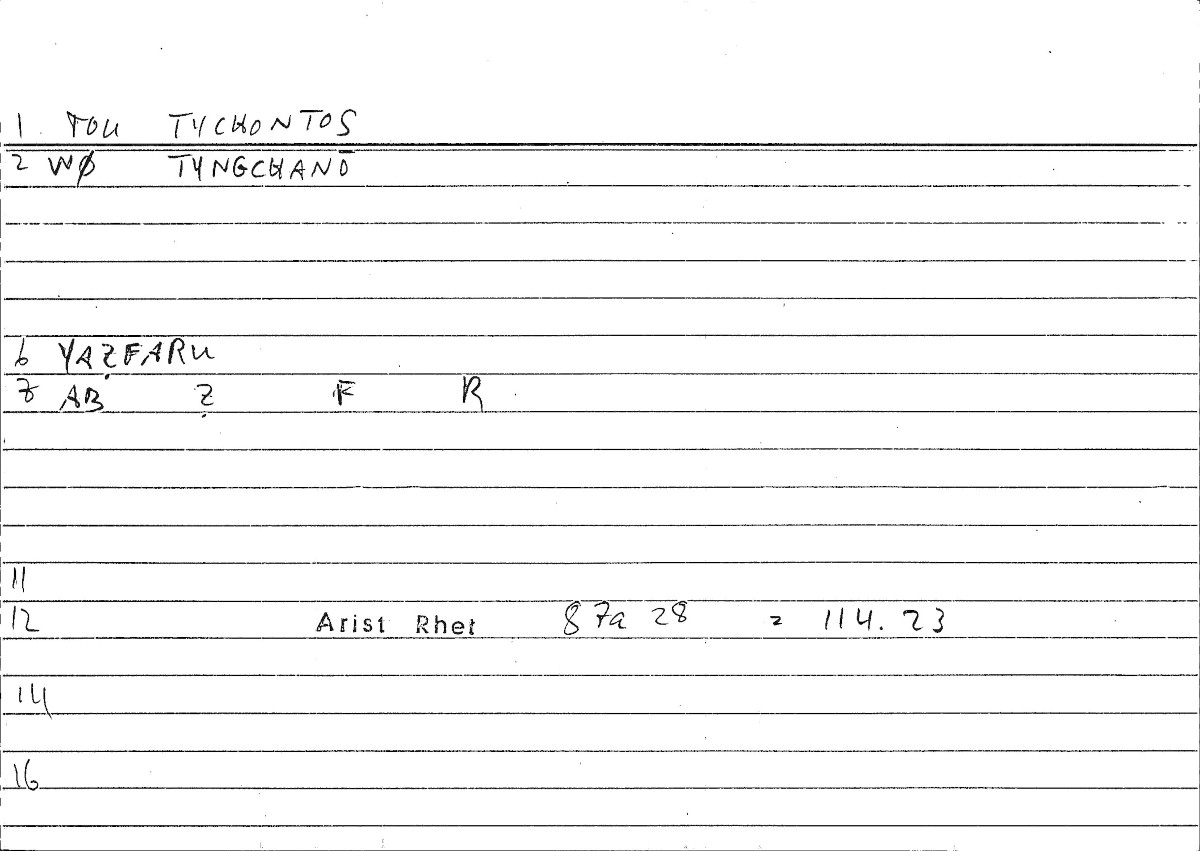 1 TOU TYCHONTOS
2 WØ TYNGCHANŌ
6 YAẒFARU
7 AB Ẓ F R
11
12 Arist Rhet 87a 28 = 114.23
14
16